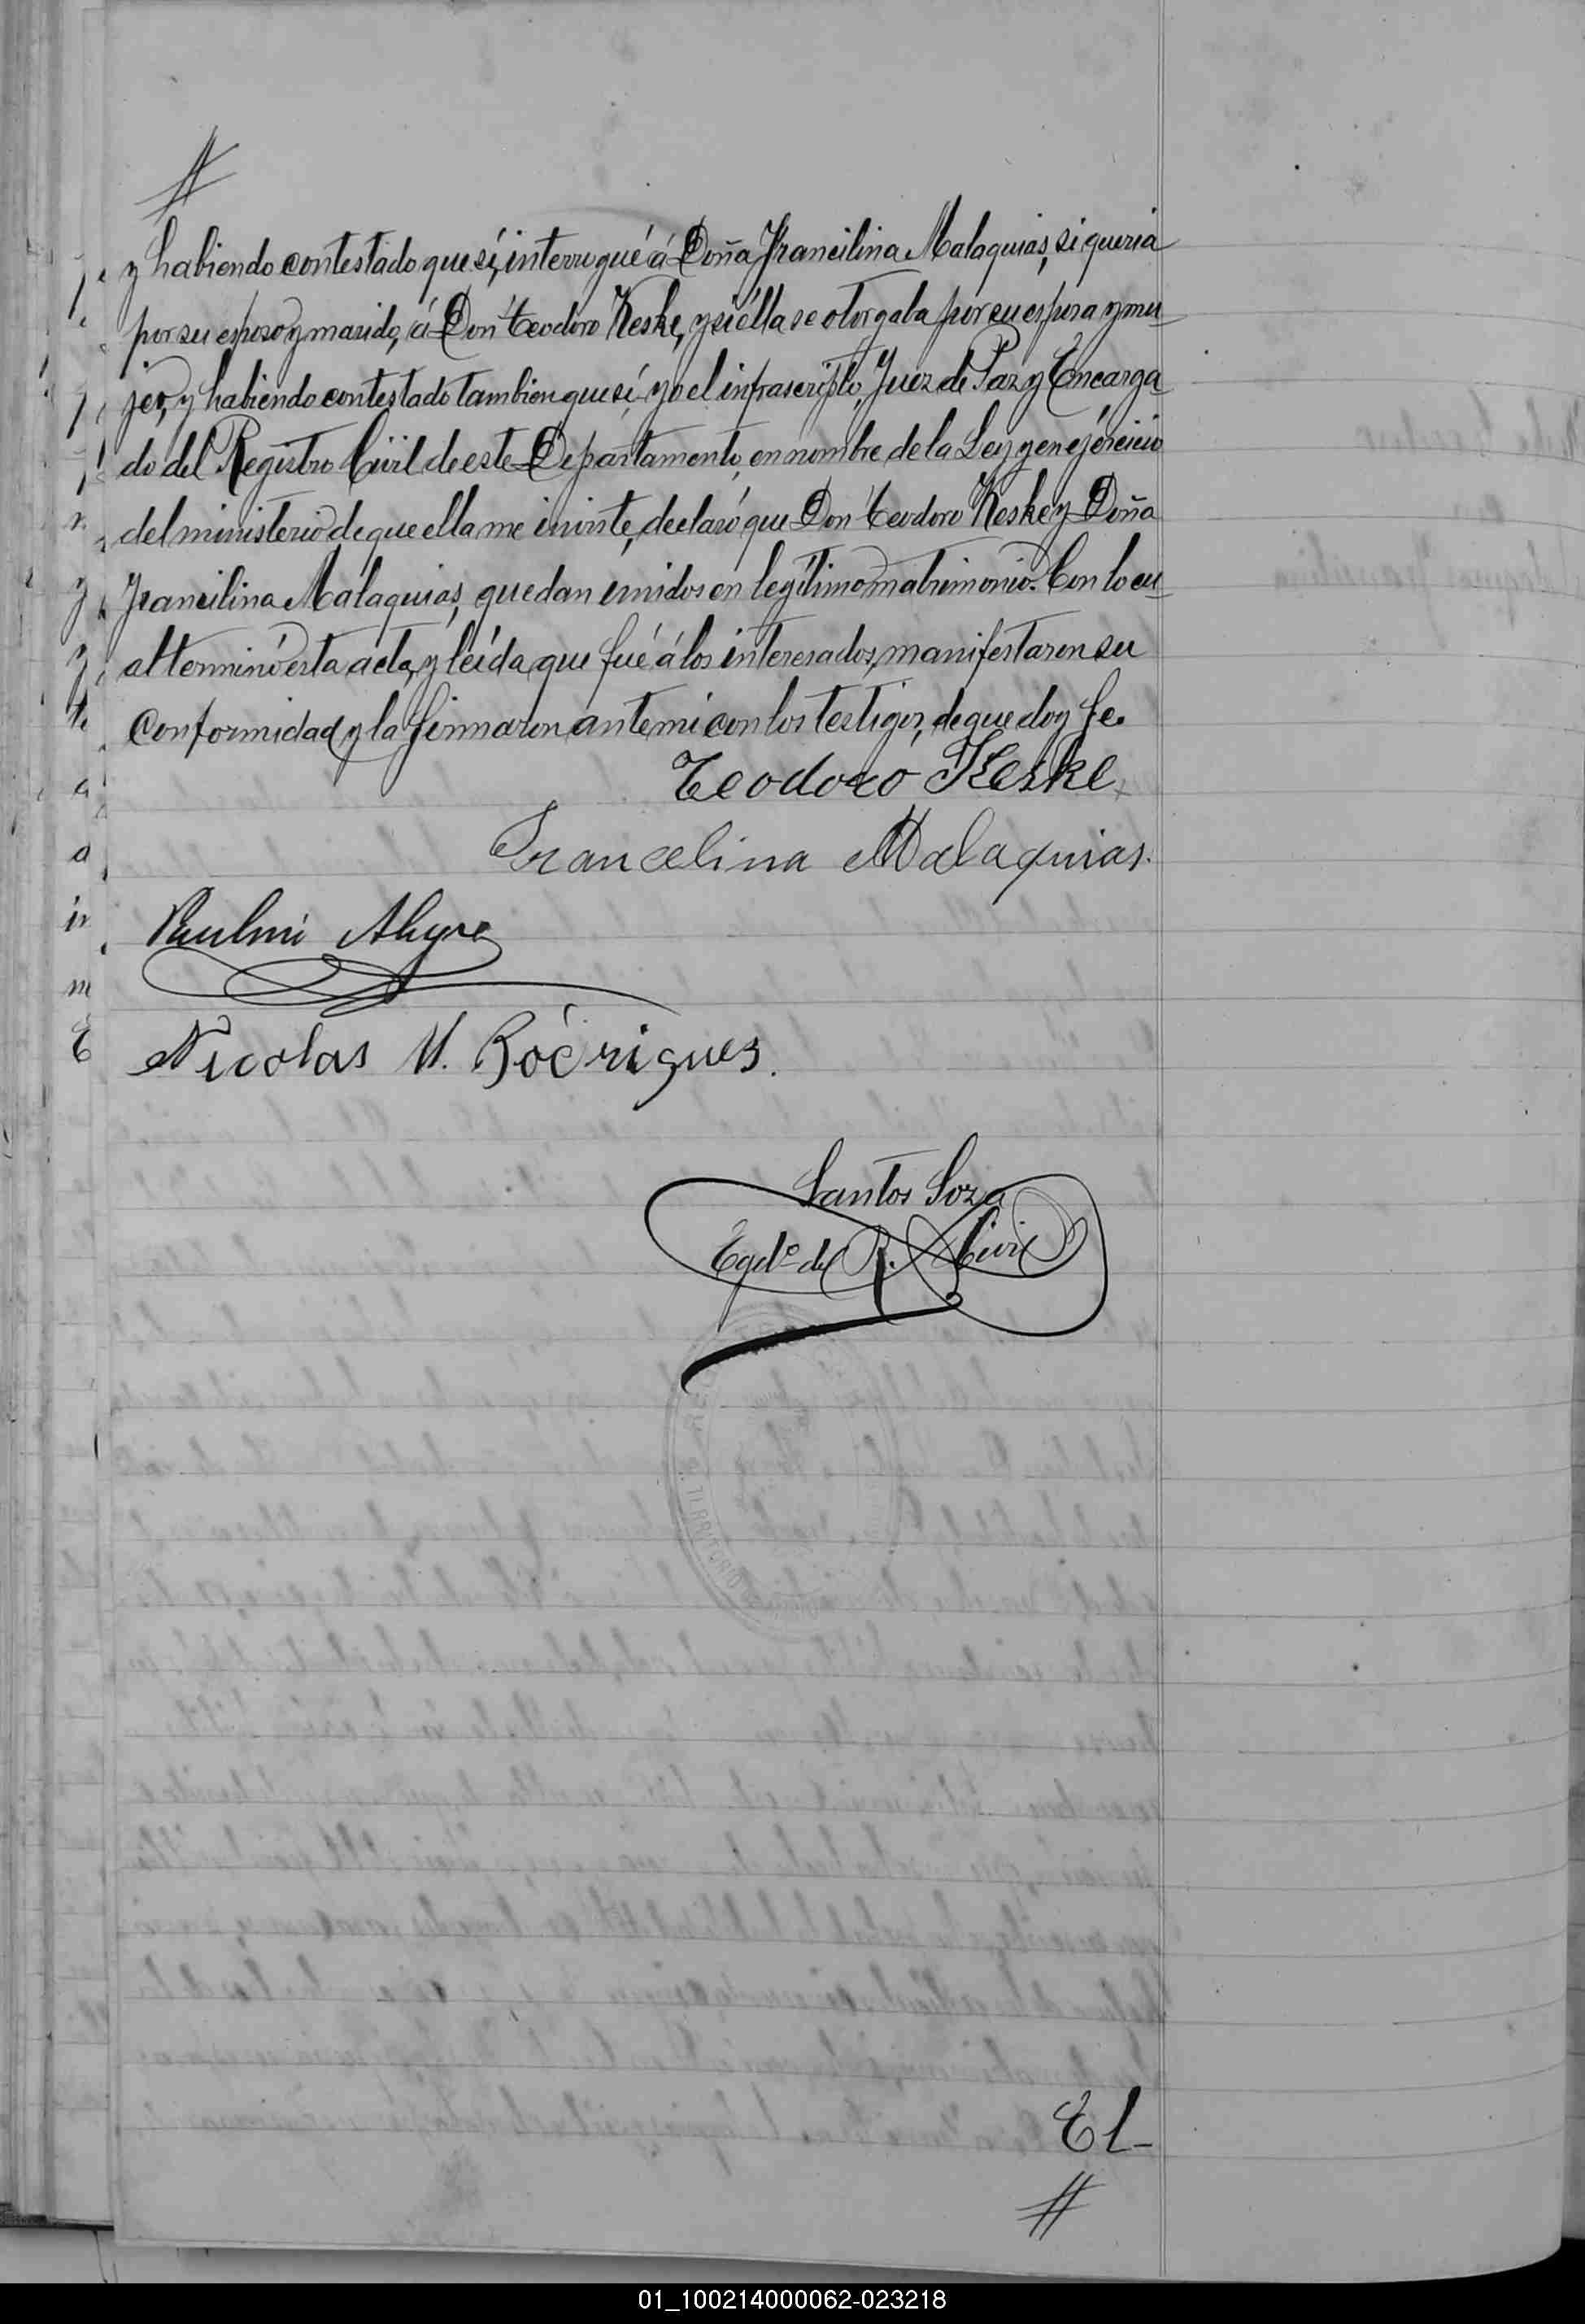 y habiendo contestado que sí, interrugué á Doña Francilina Malaquias, si queria
por su esposo y marido, á Don Teodoro Keske, y si élla se otorgaba por su esposa y mu-
jer, y habiendo contestado tambien que sí, yo el infrascripto, Juez de Paz y Encarga-
do del Registro Civil de este Departamento, en nombre de la Ley y en ejercicio
del ministerio de que ella me inviste, declaró que Don Teodoro Keske y Doña
Francilina Malaquias, quedan unidos en legítimo matrimonio. Con lo cu-
al terminó esta acta, y leída que fué á los interesados, manifestaron su
conformidad y la firmaron ante mi con los testigos, de que doy fe.
Teodoro Keske
Francelina Malaquias.
Nicolas M. Ródrigues.
Santos Soza
Egdo del R. Civil
TERRITORIO
El-
01_100214000062-023218